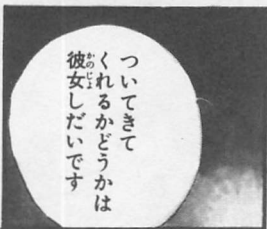 ついてきて
くれるかどうかは
彼女しだいです